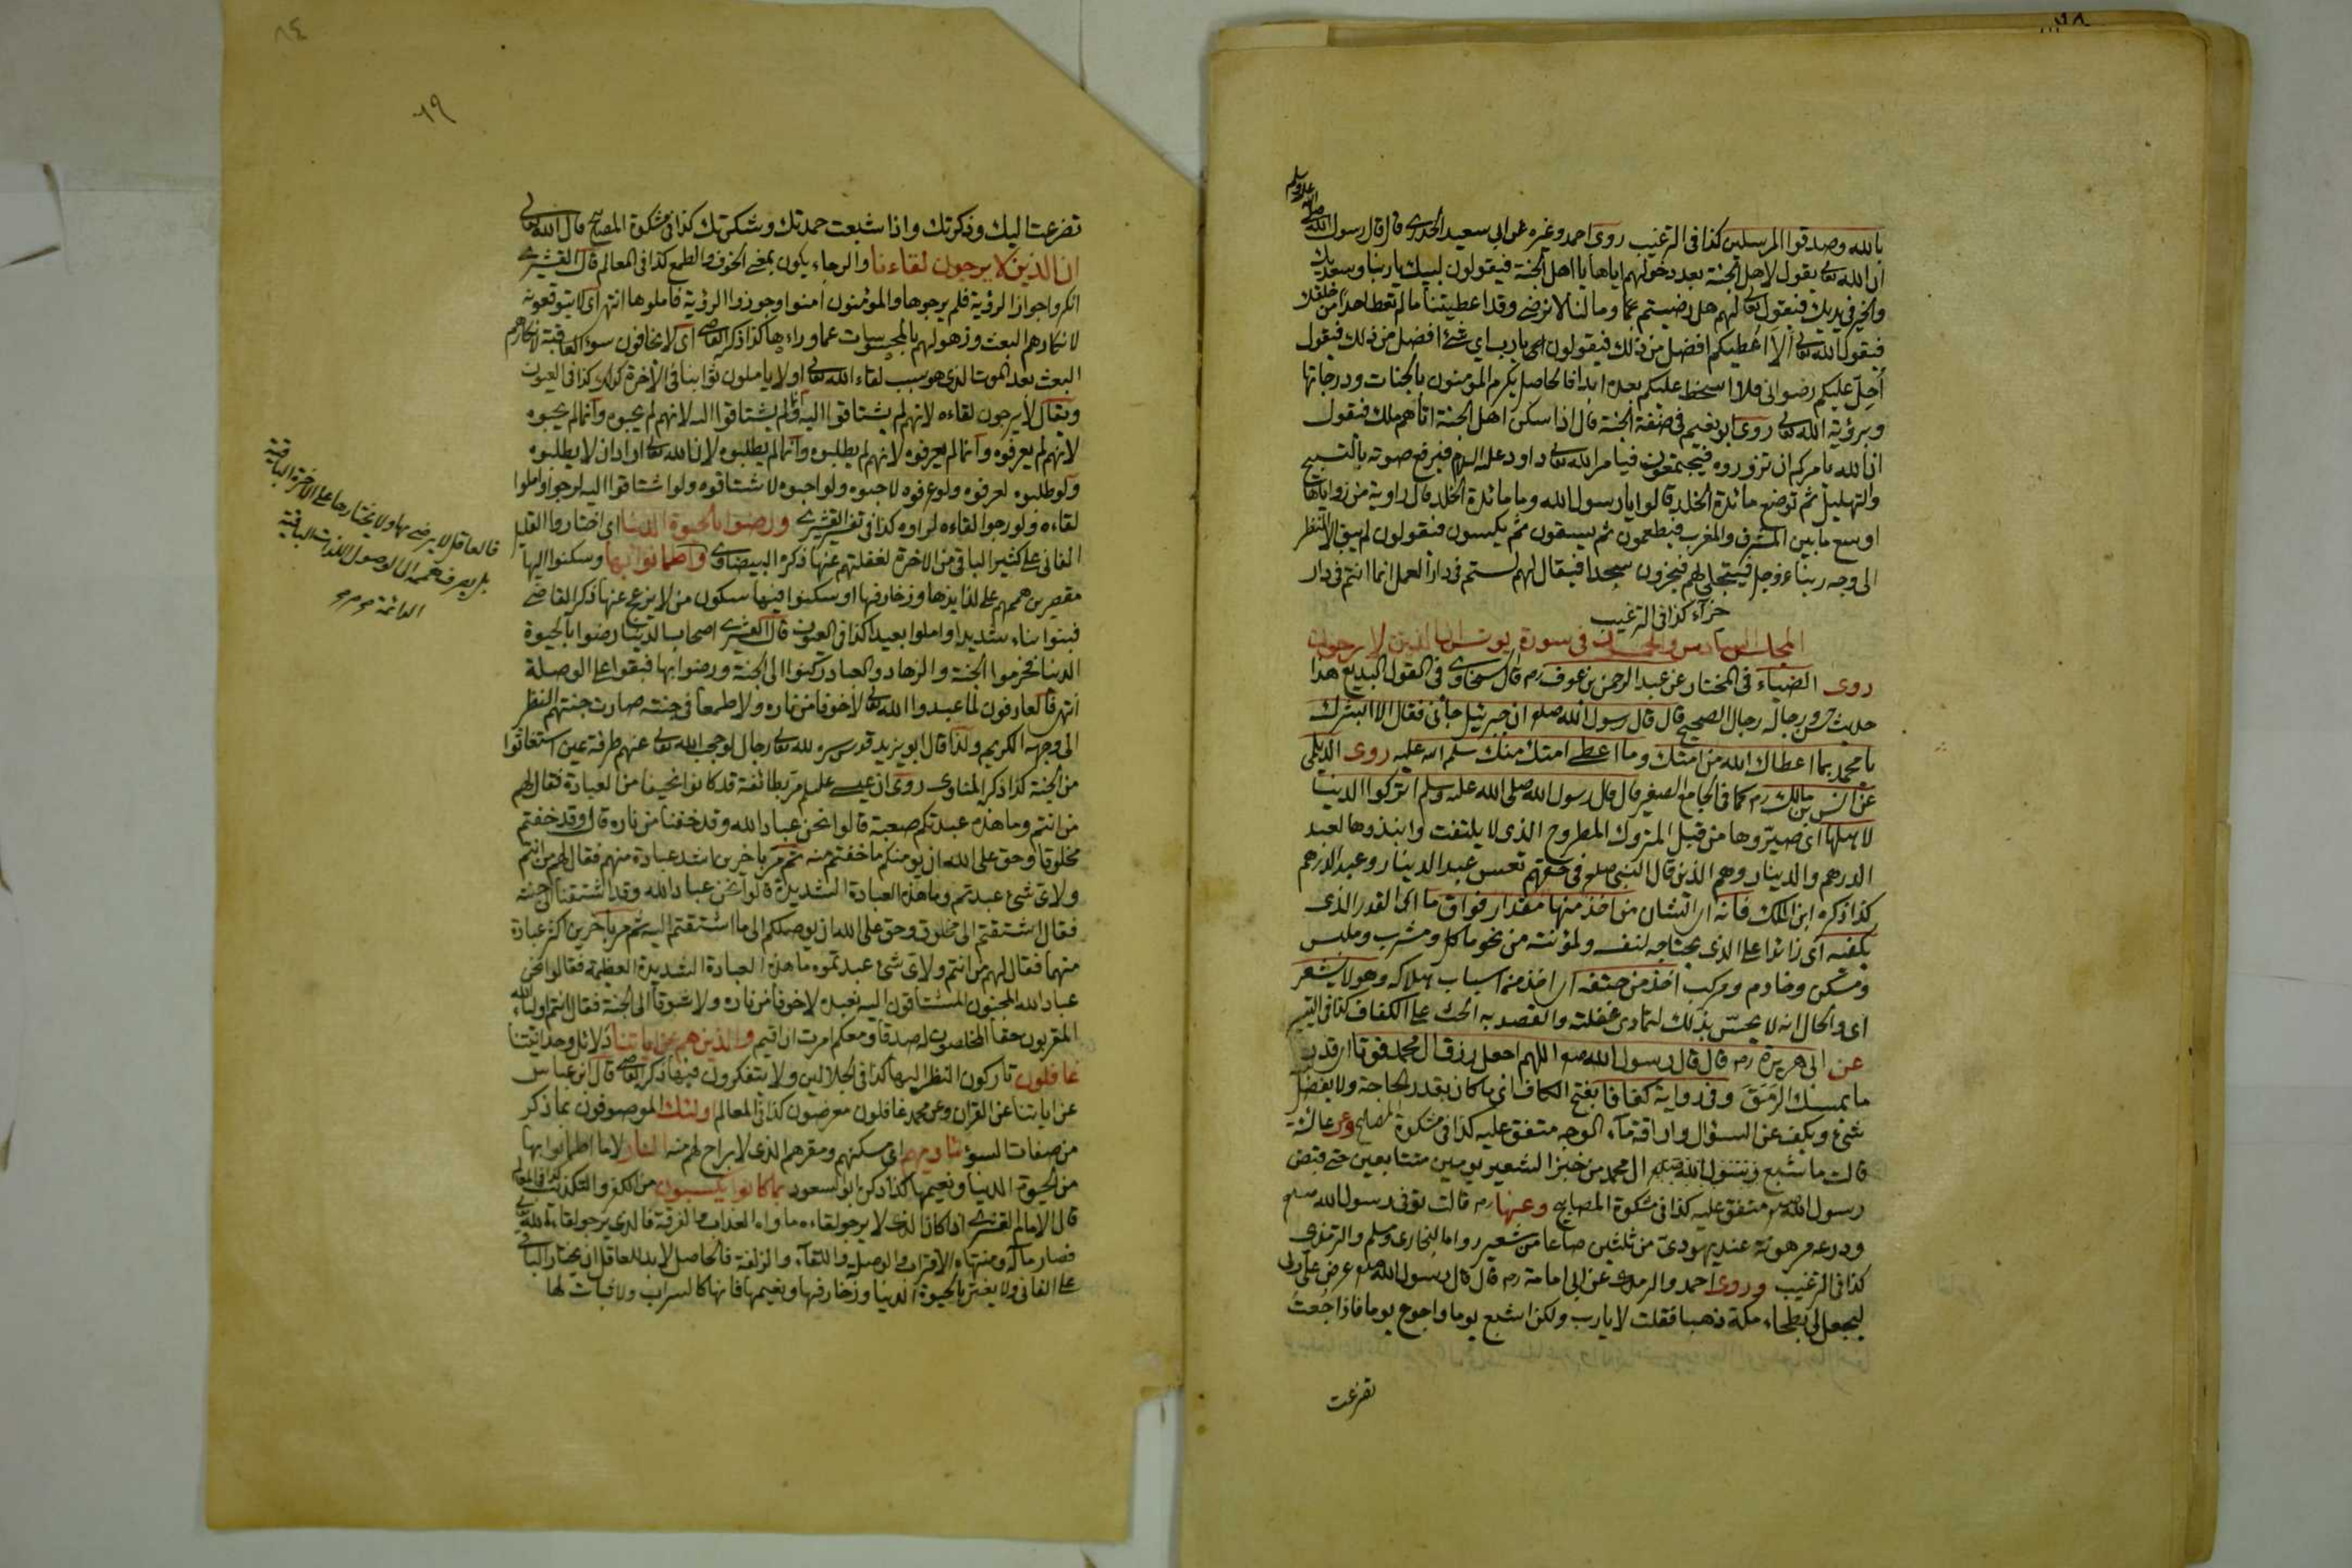 صلى الله عليه وسلم
بالله وصدقوا المرسلين كذا فى الترغيب روى احمد وغيره عن ابى سعيد الخدرى قال قال رسول الله
ان الله تعالى يقول لاهل الجنة بعد دخولهم اياها يا اهل الجنة فيقولون لبيك ياربنا وسعديك
والخير فى يديك فيقول تعالى لهم هل رضيتم عما وما لنا لا نرضى وقد اعطيتنا ما لم تعط احدا من خلقك
فيقول الله تعالى الا اعطيكم افضل من ذلك فيقولون اى يارب اى شئ افضل من ذلك فيقول
أحل عليكم رضوانى فلا اسخط عليكم بعده ابدا فالحاصل يكرم المؤمنون بالجنات ودرجاتها
وبرؤية الله تعالى روى ابو نعيم فى صفة الجنة قال اذا سكن اهل الجنة اتاهم ملك فيقول
ان الله يامركم ان تزوروه فيجتمعون فيامر الله تعالى داود عليه السلام فيرفع صوته بالتسبيح
والتهليل ثم توضع مائدة الخلد قالوا يا رسول الله وما مائدة الخلد قال زاوية من زواياها
اوسع ما بين المشرق والمغرب فيطعمون ثم يسقون ثم يكسون فيقولون لم يبق الا النظر
الى وجه ربنا عز وجل فيتجلى لهم فيخرون سجدا فيقال لهم لستم فى دار العمل انما انتم فى دار
جزاء كذا فى الترغيب
المجلس السادس والخمسون فى سورة يونس ان الذين لا يرجون
روى الضياء فى المختار عن عبد الرحمن بن عوف رم قال السخاوى فى القول البديع هذا
حديث حسن ورجاله رجال الصحيح قال قال رسول الله صلعم ان جبرئيل جائنى فقال الا ابشرك
يا محمد بما اعطاك الله من امتك وما اعطى امتك منك سلم الله عليه روى الديلمى
عن انس بن مالك رم كما فى الجامع الصغير قال قال رسول الله صلى الله عليه وسلم اتركوا الدنيا
لاهلها اى صيروها من قبل المتروك المطروح الذى لا يلتفت وانبذوها لعبد
الدرهم والدينار وهم الذين قال النبى صلعم فى حقهم تعس عبد الدينار وعبد الدرهم
كذا ذكره ابن الملك فانه اى الشان من اخذ منها مقدار فواق ما اى القدر الذى
يكفيه اى زائدا على الذى يحتاجه لنفسه ولمؤنته من نحو ماكل ومشرب وملبس
ومسكن وخادم ومركب اخذ من حتفه اى اخذ من اسباب هلاكه وهو لا يشعر
اى والحال انه لا يحس بذلك لتمادى غفلته والقصد به الحث على الكفاف كذا فى التيسير
عن ابى هريرة رم قال قال رسول الله صلعم اللهم اجعل رزق ال محمد قوتا اى قدر
ما يمسك الرمق وفى رواية كفافا بفتح الكاف اى ما كان بقدر الحاجة ولا يفضل
شئ ويكف عن السؤال واراقة ماء الوجه متفق عليه كذا فى مشكوة المصابيح وعن عائشة
قالت ما شبع ال محمد من خبز الشعير يومين متتابعين حتى قبض
رسول الله صلعم متفق عليه كذا فى مشكوة المصابيح وعنها رم قالت توفى رسول الله صلعم
ودرعه مرهونة عند يهودى من ثلثين صاعا من شعير رواه البخارى ومسلم والترمذى
كذا فى الترغيب وروى احمد والترمذى عن ابى امامة رم قال قال رسول الله صلعم عرض على ربى
ليجعل لى بطحاء مكة ذهبا فقلت لا يارب ولكن اشبع يوما واجوع يوما فاذا جعت
تضرعت
٨٤
٦٩
تضرعت اليك وذكرتك واذا شبعت حمدتك وشكرتك كذا فى مشكوة المصابيح قال الله تعالى
ان الذين لا يرجون لقاءنا والرجاء يكون بمعنى الخوف والطمع كذا فى المعالم قال القشيرى
انكروا جواز الرؤية فلم يرجوها والمؤمنون آمنوا وجوزوا الرؤية فاملوها انتهى اى لا يتوقعونه
لانكارهم البعث وذهولهم بالمحسوسات عما وراءها كذا ذكر القاضى اى لا يخافون سوء العاقبة لانكارهم
البعث بعد الموت الذى هو سبب لقاء الله تعالى او لا ياملون ثوابنا فى الاخرة كذا فى العيون
ويقال لا يرجون لقاءه لانهم لم يشتاقوا اليه وانما لم يشتاقوا اليه لانهم لم يحبوه وانما لم يحبوه
لانهم لم يعرفوه وانما لم يعرفوه لانهم لم يطلبوه وانما لم يطلبوه لان الله تعالى اراد ان لا يطلبوه
ولو طلبوه لعرفوه ولو عرفوه لاحبوه ولو احبوه لاشتاقوه ولو اشتاقوا اليه لرجوا واملوا
لقاءه ولو رجوا لقاءه لراوه كذا فى تفسير القشيرى ورضوا بالحيوة الدنيا اى اختاروا القليل
الفانى على كثير الباقى من الاخرة لغفلتهم عنها ذكره البيضاوى واطمانوا بها وسكنوا اليها
مقصرين هممهم على لذايذها وزخارفها او سكنوا فيها سكون من لا يزعج عنها ذكر القاضى
فبنوا بناء شديدا واملوا بعيدا كذا فى العيون قال القشيرى اصحاب الدنيا رضوا بالحيوة
الدنيا فحرموا الجنة والزهاد والعباد ركنوا الى الجنة ورضوا بها فبقوا على الوصلة
انتهى فالعارفون لما عبدوا الله تعالى لا خوفا من ناره ولا طمعا فى جنته صارت جنتهم النظر
الى وجهه الكريم ولذا قال ابو يزيد قدس سره لله تعالى رجال لو حجب الله تعالى عنهم طرفة عين استغاثوا
من الجنة كذا ذكر المناوى روى ان عيسى عليه السلام مر بطائفة قد كانوا نحيفا من العبادة فقال لهم
من انتم وما هذه عبدتكم صعبة قالوا نحن عباد الله وقد خفنا من ناره قال وقد خفتم
مخلوقا وحق على الله ان يؤمنكم ما خفتم منه ثم مر باخرين باشد عبادة منهم فقال لهم من انتم
ولاى شئ عبدتم وما هذه العبادة الشديدة قالوا نحن عباد الله وقد اشتقنا الى جنته
فقال اشتقتم الى مخلوق وحق على الله ان يوصلكم الى ما اشتقتم اليه ثم مر باخرين اكثر عبادة
منهما فقال لهم من انتم ولاى شئ عبدتموه ما هذه العبادة الشديدة العظيمة فقالوا نحن
عباد الله المحبون المشتاقون اليه نعبده لا خوفا من ناره ولا شوقا الى الجنة فقال انتم اولياء الله
المقربون حقا المخلصون له صدقا ومعكم امرت ان اقيم والذين هم عن اياتنا دلائل وحدانيتنا
غافلون تاركون النظر اليها كذا فى الجلالين ولا يتفكرون فيها ذكر القاضى قال ابن عباس
عن اياتنا عن القران وعن محمد غافلون معرضون كذا فى المعالم اولئك الموصوفون بما ذكر
من صفات السوء ماويهم اى مسكنهم ومقرهم الذى لا براح لهم منه النار لا ما اطمانوا بها
من الحيوة الدنيا ونعيمها كذا ذكر ابو السعود بما كانوا يكسبون من الكفر والتكذيب كذا فى المعالم
قال الامام القشيرى اذا كان الذى لا يرجو لقاءه ماواه العذاب والفرقة فالذى يرجو لقاء الله تعالى
فصار مآله ومنتهاه الاقتراب والوصلة واللقاء والزلفة فالحاصل لابد للعاقل ان يختار الباقى
على الفانى ولا يغتر بالحيوة الدنيا وزخارفها ونعيمها فانها كالسراب ولا ثبات لها
فالعاقل لا يرضى بها ولا يختارها على الاخرة الباقية
بل يصرف همه الى الوصول اللذات الباقية
الدائمة